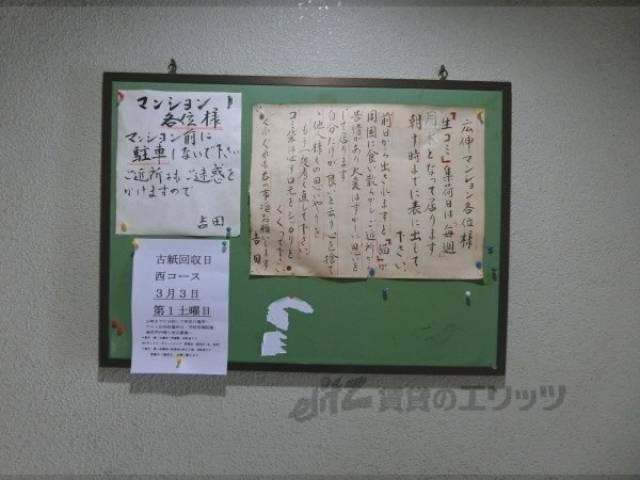 マンション
各位様
マンション前に
駐車しないで下さい
ご近所にもご迷惑を
かけますので
吉田
古紙回収日
西コース
3月3日
第1土曜日
広伸マンション各位様
「生ゴミ」集荷日は「毎週」
月、木となって居ります
朝8時までに表に出して
下さい
前日から出されますと「猫」が
周囲に食い散らかし、ご近所から
苦情があり大変はずかしい思いを
して居ります
自分だけが良いと云う心を捨て
他人様を思いやりを
もう一度考え直して下さい
ゴミ袋は必ず口元をシッカリと
くくって下さい
くれぐれも右の事項お願いします
吉田
elitz 賃貸のエリッツ